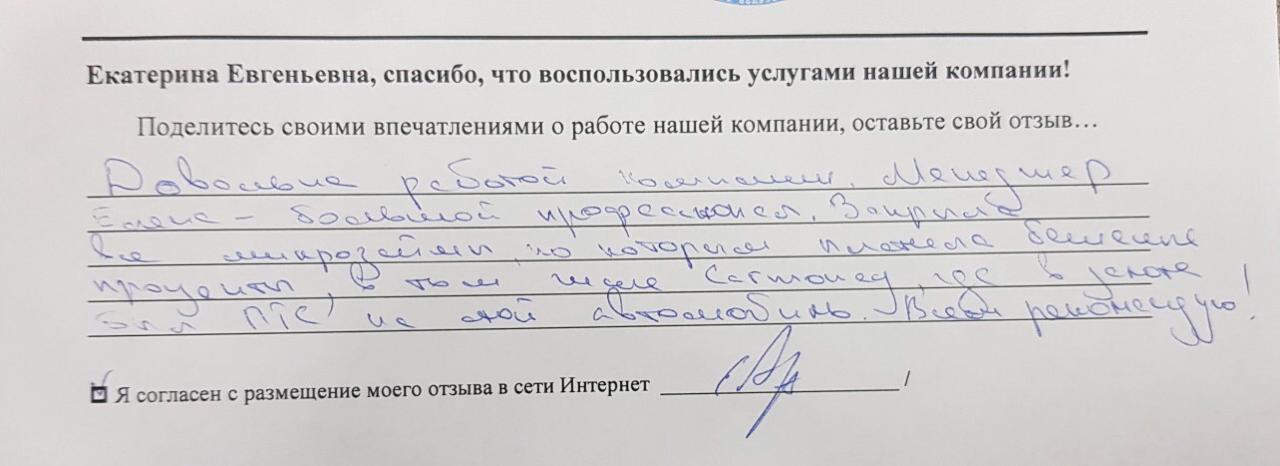 Екатерина Евгеньевна, спасибо, что воспользовались услугами нашей компании!
Поделитесь своими впечатлениями о работе нашей компании, оставьте свой отзыв…
Довольна работой компании. Менеджер
Елена - большой профессионал. Закрыла
все микрозаймы, по которым платила бешеные
проценты, в том числе Carmoney, где в залоге
был ПТС на мой автомобиль. Всем рекомендую!
Я согласен с размещение моего отзыва в сети Интернет /